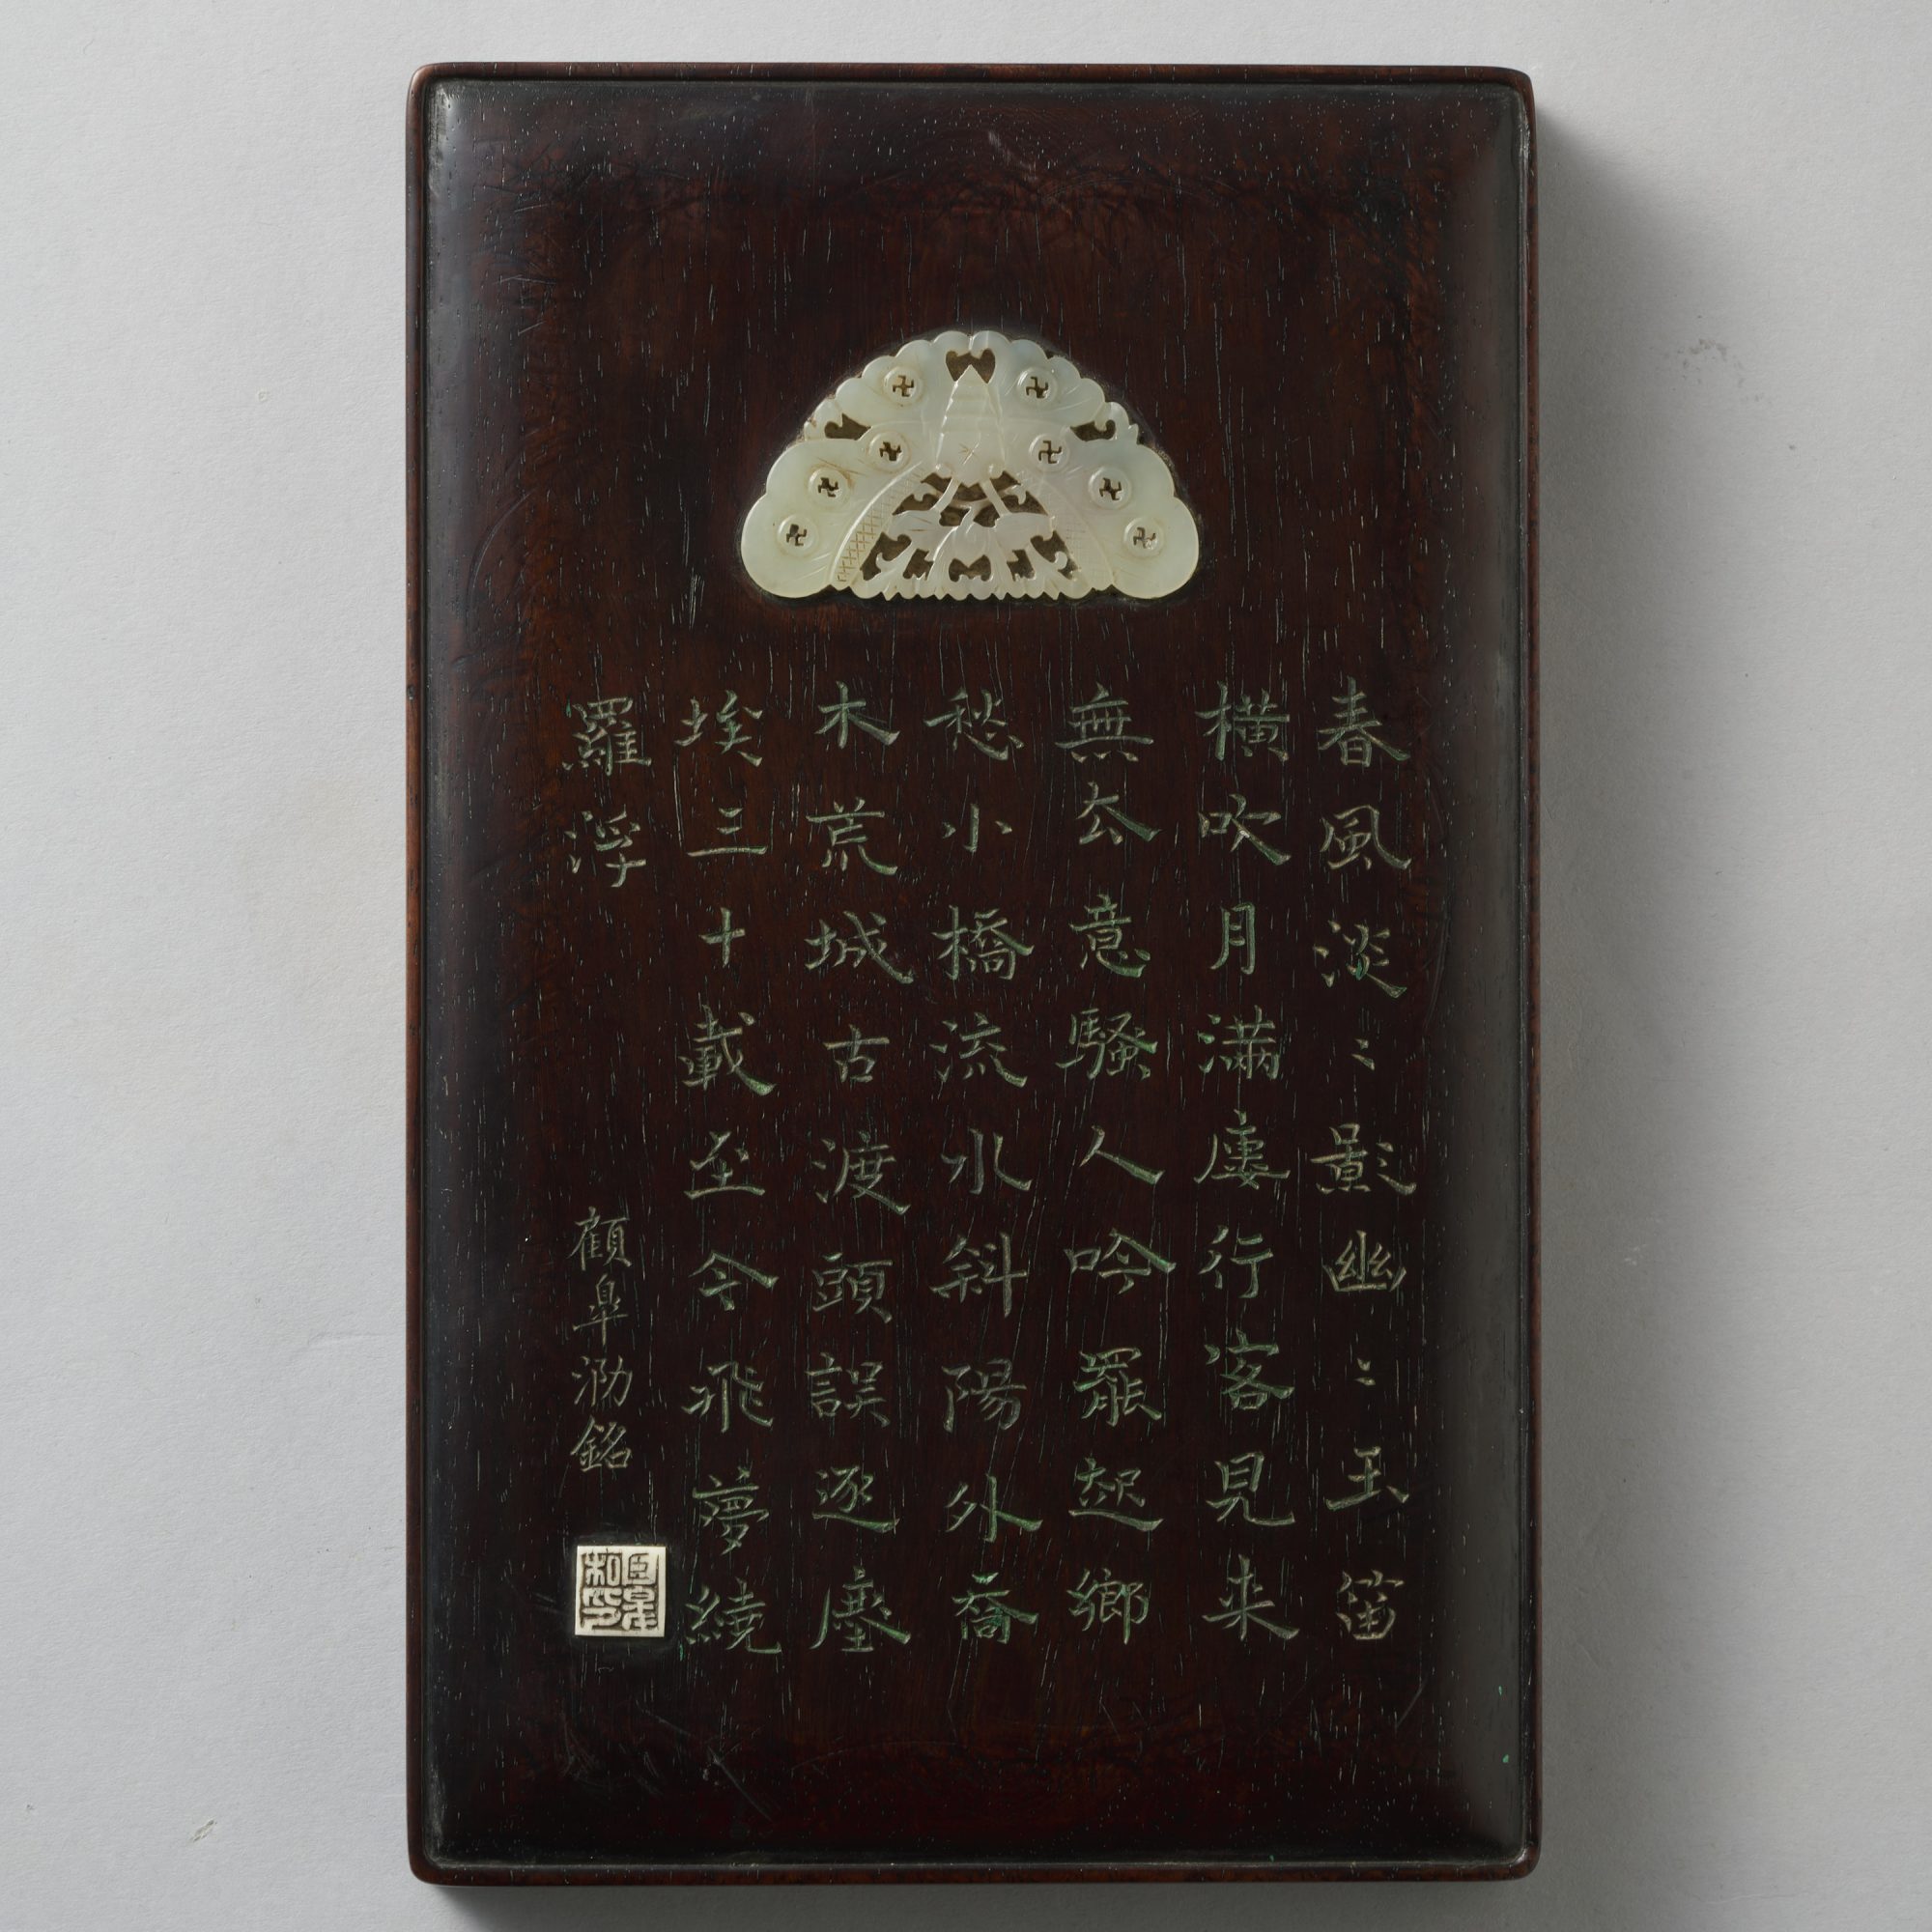 春風淡〻影幽〻玉笛
橫吹月滿廔行客見来
無厺意騷人吟罷起鄉
愁小橋流水斜陽外喬
木荒城古渡頭誤逐塵
埃三十載至今飛夢繞
羅浮
顧皐泐銘
臣皋和印